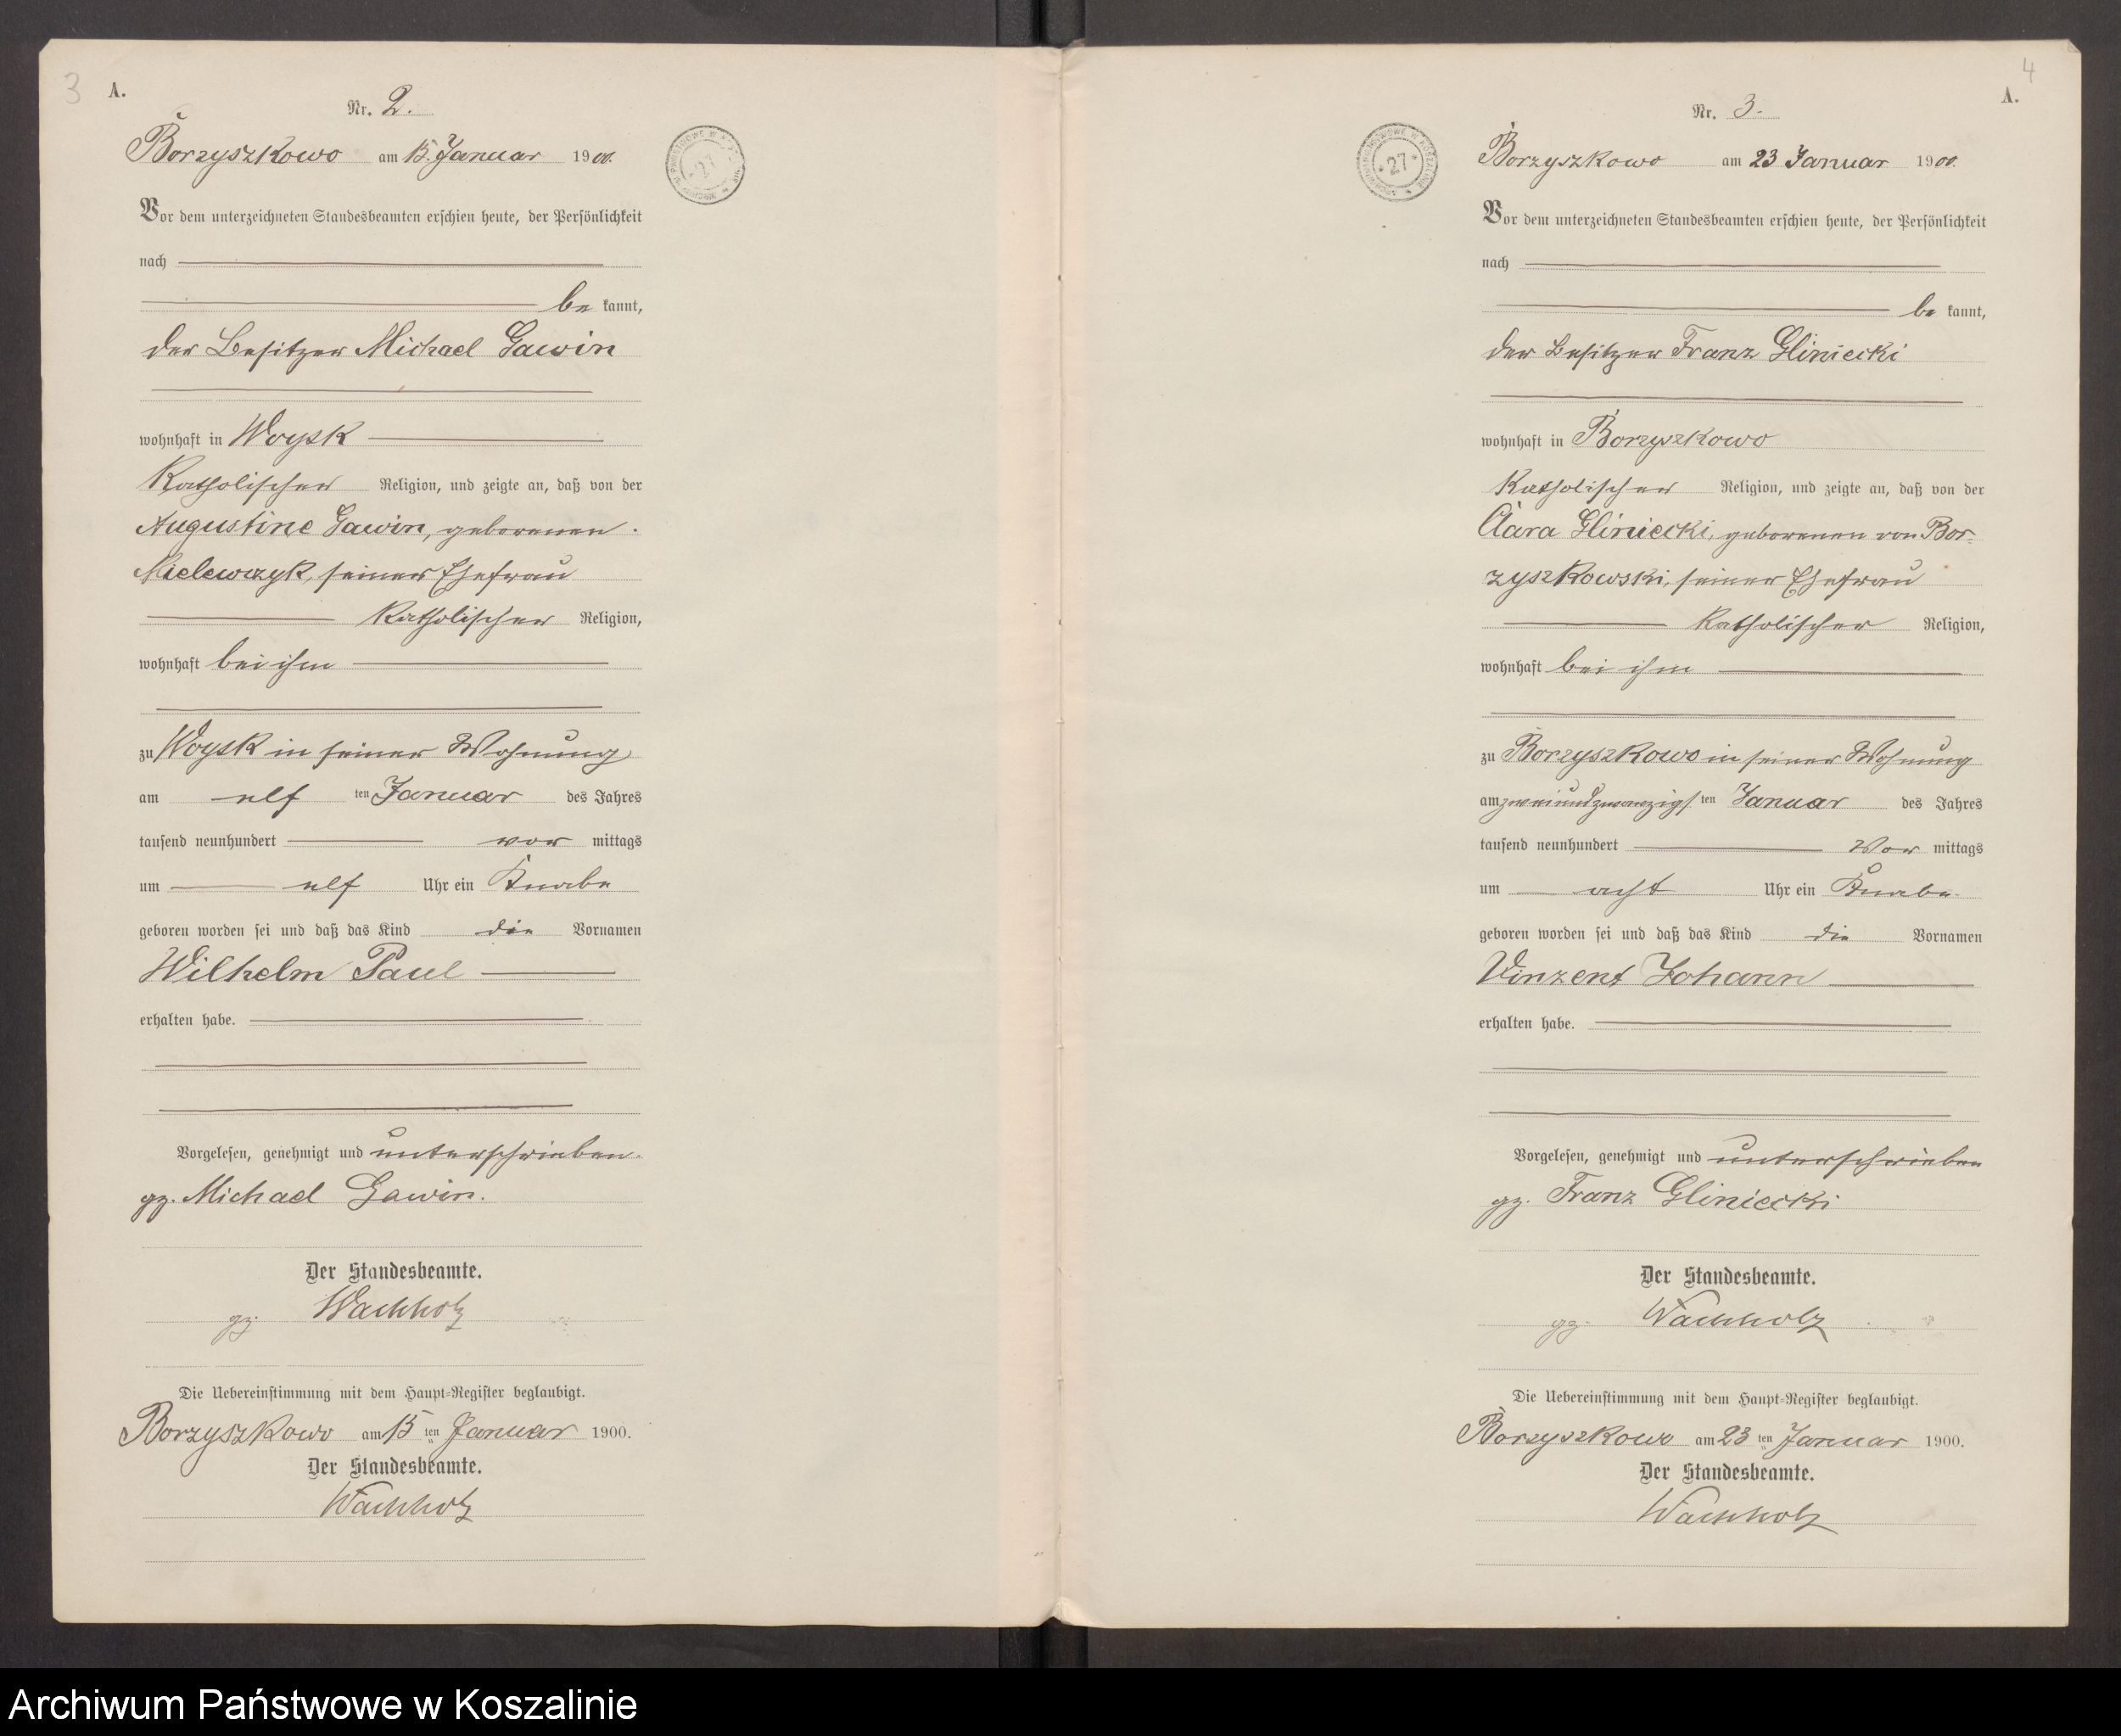 3
A.
Nr. 2.
Borzyszkowo am 15. Januar 1900.
Vor dem unterzeichneten Standesbeamten erschien heute, der Persönlichkeit
nach
be kannt,
der Besitzer Michael Gawin
wohnhaft in Woysk
katholischer Religion, und zeigte an, daß von der
Augustine Gawin, geborenen
Mielewczyk, seiner Ehefrau
katholischer Religion,
wohnhaft bei ihm
zu Woysk in seiner Wohnung
am elf ten Januar des Jahres
tausend neunhundert vor mittags
um elf Uhr ein Knabe
geboren worden sei und daß das Kind die Vornamen
Wilhelm Paul
erhalten habe.
Vorgelesen, genehmigt und unterschrieben.
gz. Michael Gawin.
Der Standesbeamte.
gz. Wachholz
Die Uebereinstimmung mit dem Haupt-Register beglaubigt.
Borzyszkowo am 15 ten Januar 1900.
Der Standesbeamte.
Wachholz
4
A.
Nr. 3.
27
Borzyszkowo am 23 Januar 1900.
Vor dem unterzeichneten Standesbeamten erschien heute, der Persönlichkeit
nach
be kannt,
der Besitzer Franz Gliniecki
wohnhaft in Borzyszkowo
katholischer Religion, und zeigte an, daß von der
Clara Gliniecki, geborenen von Bor-
zyszkowski, seiner Ehefrau
katholischer Religion,
wohnhaft bei ihm
zu Borzyszkowo in seiner Wohnung
am zweiundzwanzigs ten Januar des Jahres
tausend neunhundert Vor mittags
um acht Uhr ein Knabe
geboren worden sei und daß das Kind die Vornamen
Vinzent Johann
erhalten habe.
Vorgelesen, genehmigt und unterschrieben
gz. Franz Gliniecki
Der Standesbeamte.
gz. Wachholz
Die Uebereinstimmung mit dem Haupt-Register beglaubigt.
Borzyszkowo am 23 ten Januar 1900.
Der Standesbeamte.
Wachholz
Archiwum Państwowe w Koszalinie